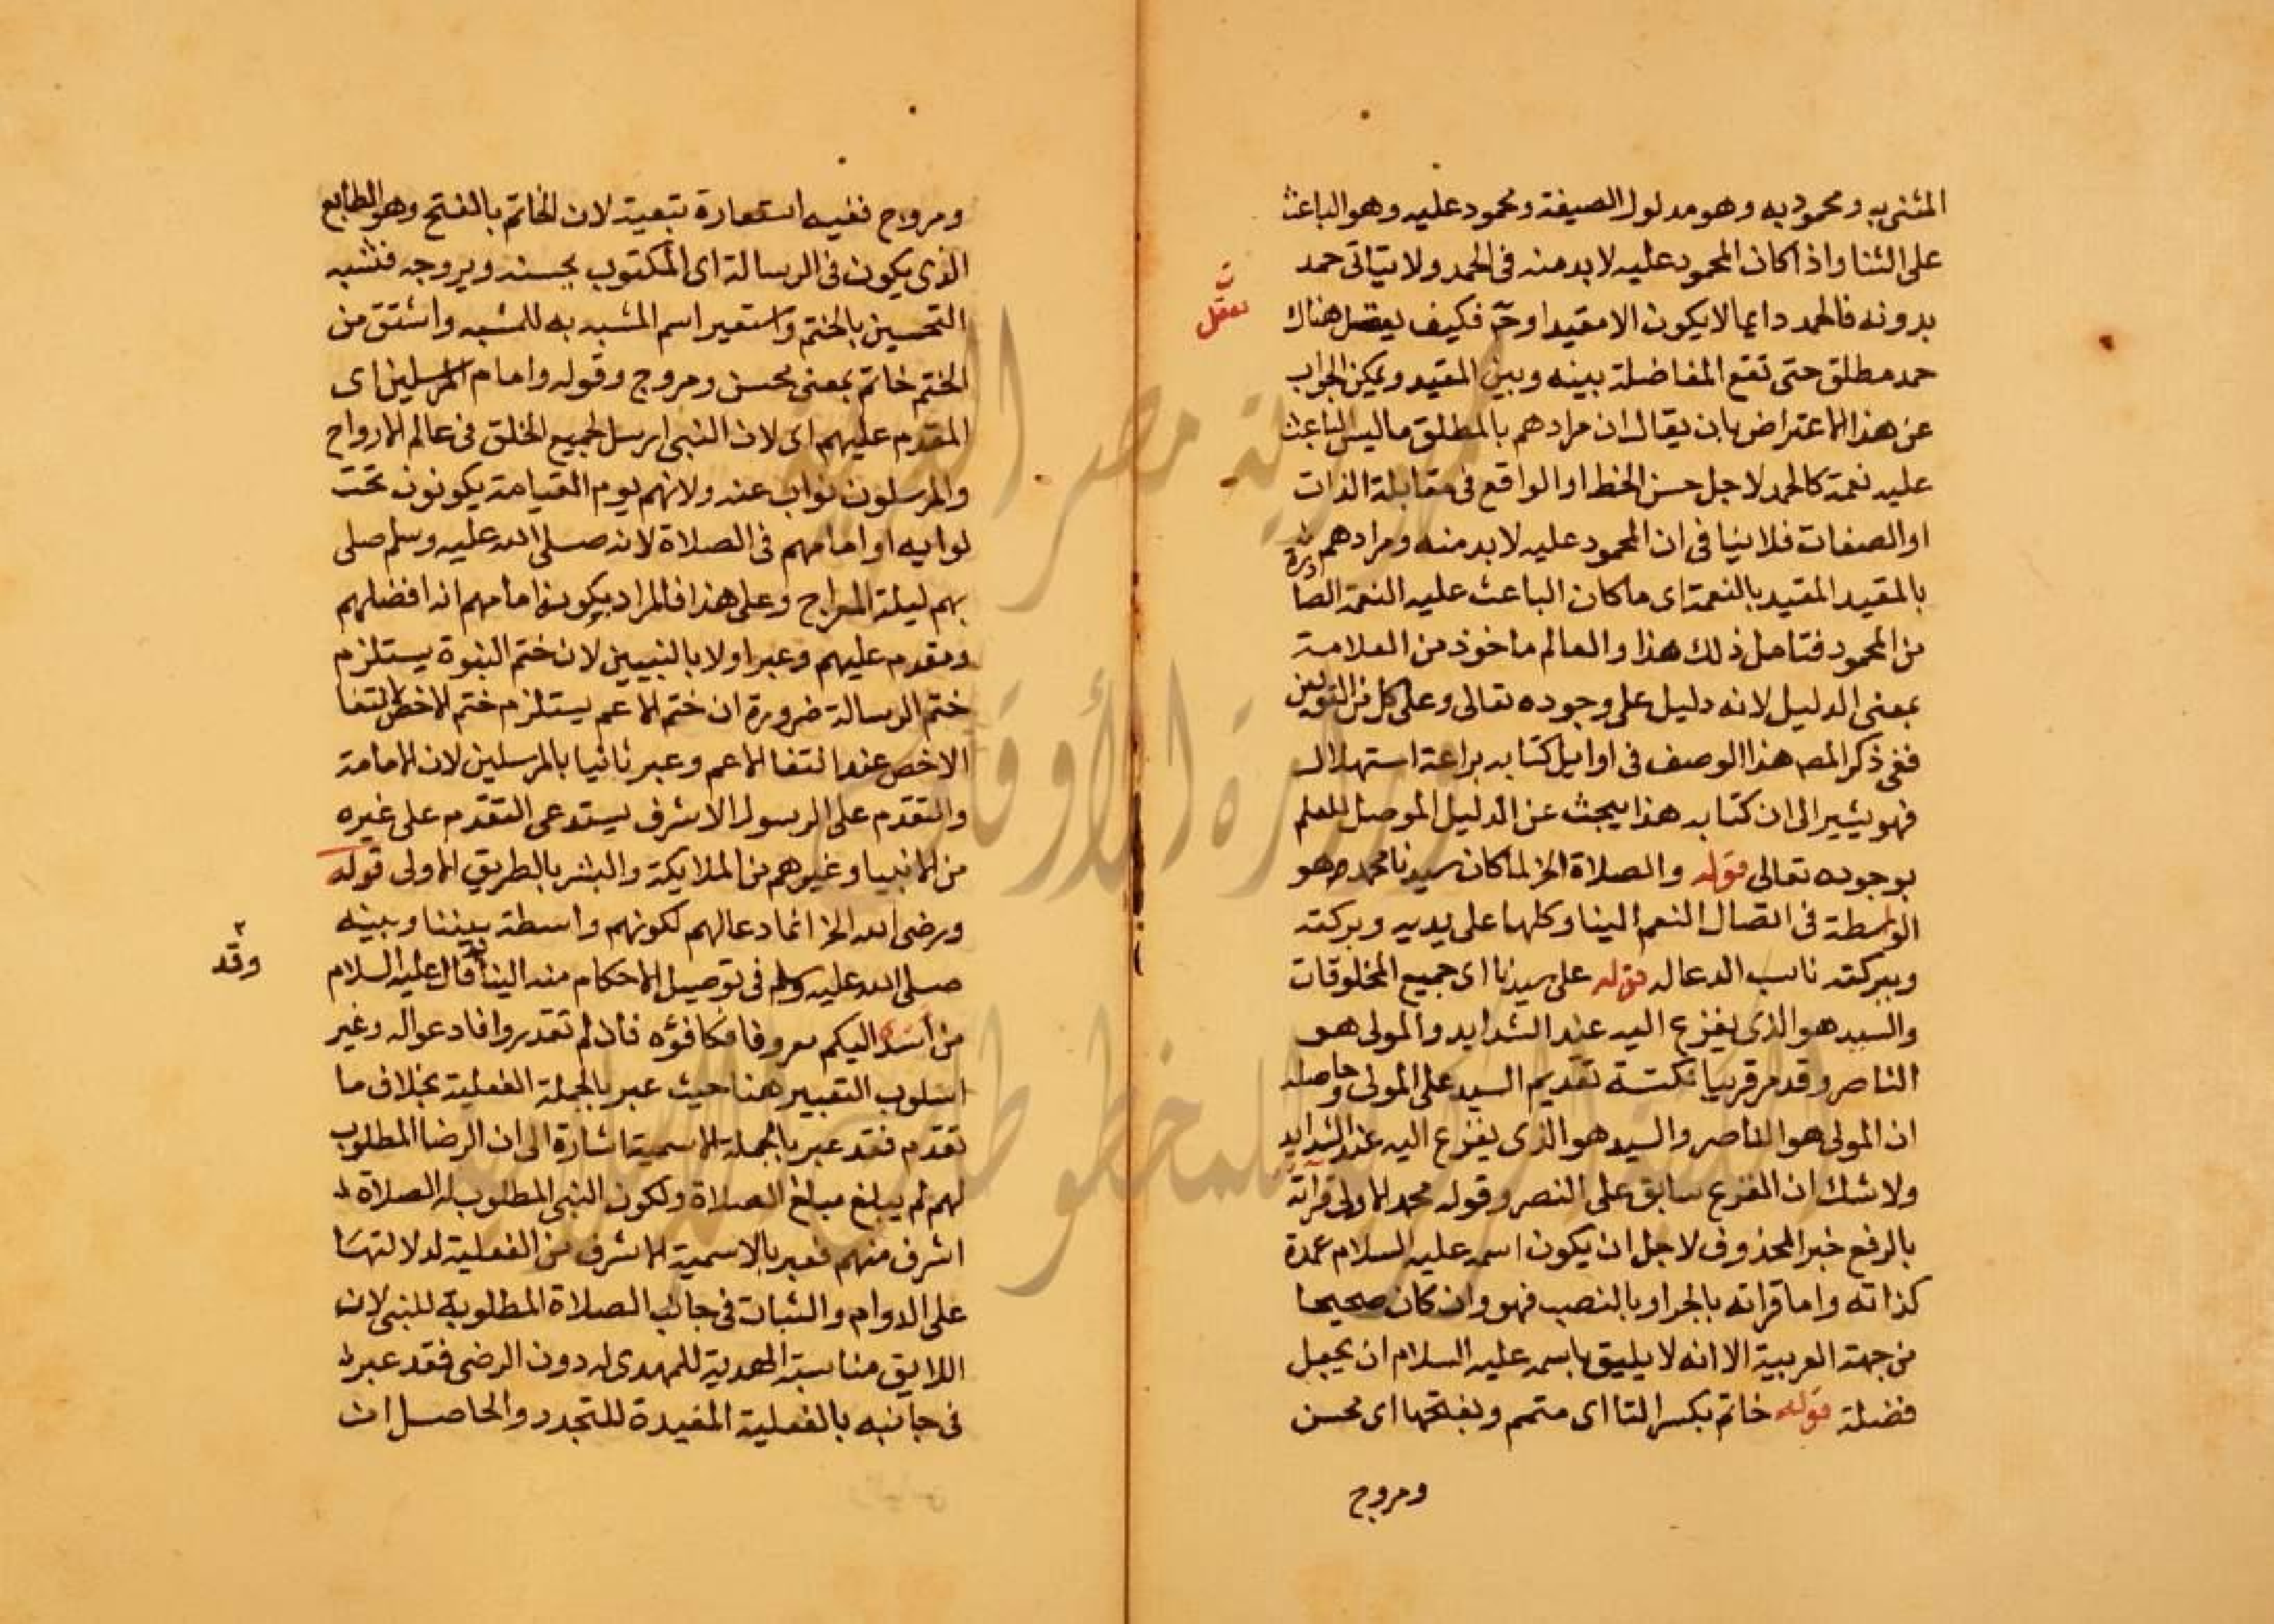 المثنى به ومحمود به وهو مدلول الصيغة ومحمود عليه وهو الباعث
على الثنا واذا كان المحمود عليه لا بد منه في الحمد ولا يتاتى حمد
بدونه فالحمد دايما لا يكون الا مقيدا وح فكيف يعقل هناك
تعقل
حمد مطلق حتى تقع المفاضلة بينه وبين المقيد ويمكن الجواب
عن هذا الاعتراض بان يقال ان مرادهم بالمطلق ما ليس الباعث
عليه نعمة كالحمد لاجل حسن الخط او الواقع في مقابلة الذات
او الصفات فلا ينافي ان المحمود عليه لا بد منه ومرادهم
بالمقيد المقيد بالنعمة اى ما كان الباعث عليه النعمة الصا
درة
من المحمود فتامل ذلك هذا والعالم ماخوذ من العلامة
بمعنى الدليل لانه دليل على وجوده تعالى وعلى كل من القولين
ففي ذكر المص هذا الوصف في اوايل كتابه براعة استهلال
فهو يشير الى ان كتابه هذا يبحث عن الدليل الموصل للعلم
بوجوده تعالى قوله والصلاة الخ لما كان سيدنا محمد ص هو
الواسطة في اتصال النعم الينا وكلها على يديه وبركته
وببركته ناسب الدعا له قوله على سيدنا اى جميع المخلوقات
والسيد هو الذى يفزع اليه عند الشدايد والمولى هو
الناصر وقد مر قريبا نكتة تقديم السيد على المولى وحاصله
ان المولى هو الناصر والسيد هو الذى يفزع اليه عند الشدايد
ولا شك ان المفزع سابق على النصر وقوله محمد الاولى قراته
بالرفع خبر المحذوف لاجل ان يكون اسمه عليه السلام عمدة
كذاته واما قراته بالجر او بالنصب فهو وان كان صحيحا
من جهة العربية الا انه لا يليق باسمه عليه السلام ان يجعل
فضلة قوله خاتم بكسر التا اى متمم وبفتحها اى محسن
ومروج
ومروج ففيه استعارة تبعية لان الخاتم بالفتح وهو الطابع
الذى يكون في الرسالة اى المكتوب يحسنه ويروجه فشبه
التحسين بالختم واستعير اسم المشبه به للمشبه واشتق من
الختم خاتم بمعنى محسن ومروج وقوله وامام المرسلين اى
المقدم عليهم اى لان النبي ارسل لجميع الخلق في عالم الارواح
والمرسلون نواب عنه ولانهم يوم القيامة يكونون تحت
لوايه او امامهم في الصلاة لانه صلى الله عليه وسلم صلى
بهم ليلة المعراج وعلى هذا فالمراد بكونه امامهم انه افضلهم
ومقدم عليهم وعبر اولا بالنبيين لان ختم النبوة يستلزم
ختم الرسالة ضرورة ان ختم الاعم يستلزم ختم الاخص لانتفا
الاخص عند انتفا الاعم وعبر ثانيا بالمرسلين لان الامامة
والتقدم على الرسول الاشرف يستدعى التقدم على غيره
من الانبيا وغيرهم من الملايكة والبشر بالطريق الاولى قوله
ورضى الله الخ انما دعا لهم لكونهم واسطة بيننا وبينه
صلى الله عليه وسلم في توصيل الاحكام منه الينا قال عليه السلام
وقد
من اسدى اليكم معروفا فكافؤه فان لم تقدروا فادعوا له وغير
اسلوب التعبير هنا حيث عبر بالجملة الفعلية بخلاف ما
تقدم فقد عبر بالجملة الاسمية اشارة الى ان الرضا المطلوب
لهم لم يبلغ مبلغ الصلاة ولكون النبي المطلوب له الصلاة
اشرف منهم فعبر بالاسمية الاشرف من الفعلية لدلالتها
على الدوام والثبات في جانب الصلاة المطلوبة للنبي لان
اللايق مناسبة الهدية للمهدى له دون الرضى فقد عبر
في جانبه بالفعلية المفيدة للتجدد والحاصل ان